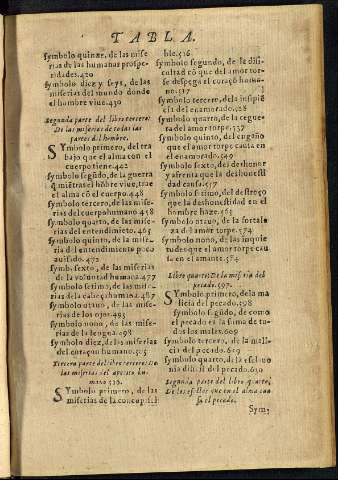 TABLA.
symbolo quinze, de las mise
rias de las humanas prospe
ridades. 420
symbolo diez y seys, de las
miserias del mundo donde
el hombre viue. 430
Segunda parte del libro tercero:
De las miserias de todas las
partes del hombre.
SYmbolo primero, del tra
bajo que el alma con el
cuerpo tiene. 442
symbolo segũdo, de la guerra
q̃ miẽtras el hõbre viue, trae
el alma cõ el cuerpo. 448
symbolo tercero, de las miserias
del cuerpo humano. 458
symbolo quarto, de las miserias
del entendimiẽto. 463
symbolo quinto, de la miseria
del entendimiento poca
auisido. 472
symb. sexto, de las miserias
de la voluntad humana. 477
symbolo setimo, de las miserias
de la cabeça humana. 487
symbolo otauo, de las miserias
de los ojos. 493
symbolo nono, de las miserias
de la lengua. 498
symbolo diez, de las miserias
del coraçon humano. 505
Tercera parte del libro tercero: De
las miserias del apetito hu
mano. 510.
SYmbolo primero, de las
miserias de la concupisci
ble. 516
symbolo segundo, de la difi
cultad cõ que del amor tor
se despega el coraçõ humano. 517
symbolo tercero, de la insipiẽ
cia del enamorado.
symbolo quarto, de la ceguera
del amor torpe. 537
symbolo quinto, del engaño
que el amor torpe causa en
el enamorado. 549
symbolo sexto, del deshonor
y afrenta que la deshonestidad
causa. 557
symbolo setimo, del destroço
que la deshonestidad en el
hombre haze. 565
symbolo otauo, de la fortaleza
del amor torpe. 574
symbolo nono, de las inquietudes
que el amor torpe causa
en el amante. 574
Libro quarto: De la miseria del
pecado. 597.
SYmbolo primero, de la malicia
del pecado. 598
symbolo segũdo, de como
el pecado es la suma de todos
los males. 609
symbolo tercero, de la malicia
del pecado. 609
symbolo quarto, de la
del pecado. 630
Segunda parte del libro quarto,
De los efectos que en el alma cau
sa el pecado.
Sym,